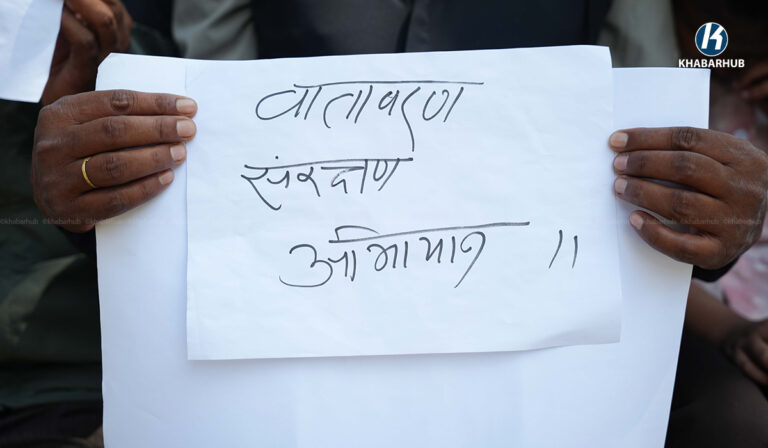 KHABARHUB
वातावरण
संरक्षण
अभियान ।।
©khabarhub ©khabarhub ©khabarhub ©khabarhub ©khabarhub ©khabarhub